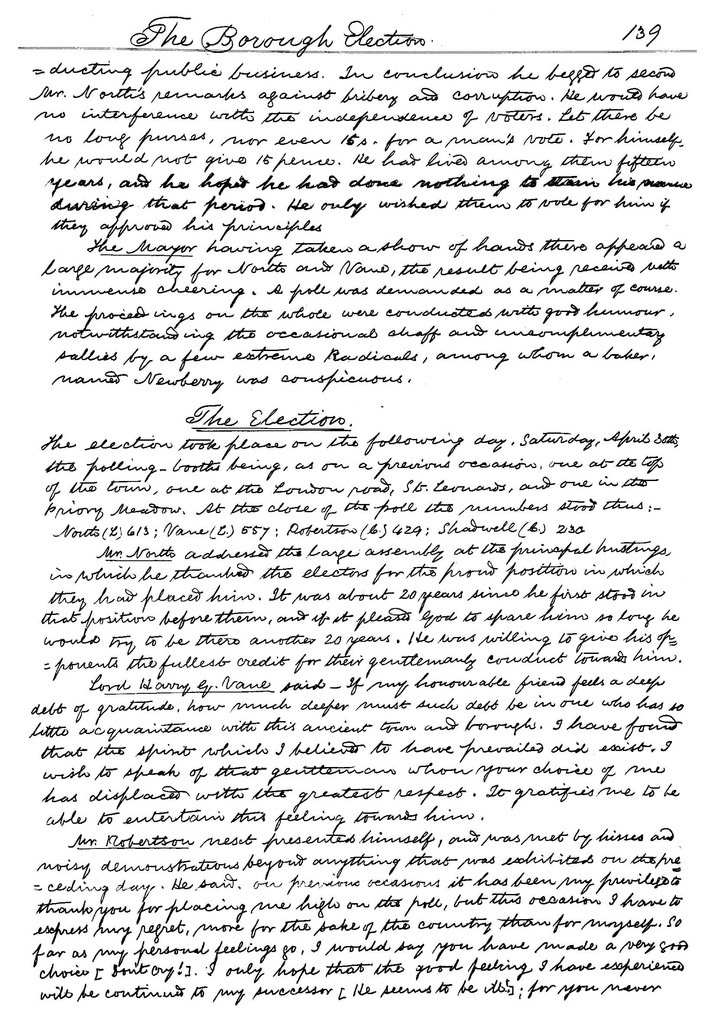 The Borough Election. 139
=ducting public business. In conclusion he begged to second
Mr. North's remarks against bribery and corruption. He would have
no interference with the independence of voters. Let there be
no long purses, nor even 15s. for a man's vote. For himself
he would not give 15 pence. He had lived among them fifteen
years, and he hoped he had done nothing to stain his name
during that period. He only wished them to vote for him if
they approved his principles
The Mayor having taken a show of hands there appeared a
large majority for North and Vane, the result being received with
immense cheering. A poll was demanded as a matter of course.
The proceedings on the whole were conducted with good humour,
notwithstanding the occasional chaff and uncomplimentary
sallies by a few extreme Radicals, among whom a baker,
named Newberry was conspicuous.
The Election.
The election took place on the following day, Saturday, April 30th,
the polling-booths being, as on a previous occasion, one at the top
of the town, one at the London road, St. Leonards, and one in the
Priory Meadow. At the close of the poll the numbers stood thus:-
North (L) 613; Vane (L.) 557; Robertson (C.) 429; Shadwell (C.) 230
Mr. North addressed the large assembly at the principal hustings,
in which he thanked the electors for the proud position in which
they had placed him. It was about 20 years since he first stood in
that position before them, and if it pleased God to spare him so long he
would try to be there another 20 years. He was willing to give his op=
=ponents the fullest credit for their gentlemanly conduct towards him.
Lord Harry G. Vane said - If my honourable friend feels a deep
debt of gratitude, how much deeper must such debt be in one who has so
little acquaintance with this ancient town and borough. I have found
that the spirit which I believed to have prevailed did exist. I
wish to speak of that gentleman whom your choice of me
has displaced with the greatest respect. It gratifies me to be
able to entertain this feeling towards him.
Mr. Robertson next presented himself, and was met by hisses and
noisy demonstrations beyond anything that was exhibited on the pre
=ceding day. He said, on previous occasions it has been my privilege to
thank you for placing me high on the poll, but this occasion I have to
express my regret, more for the sake of the country than for myself. So
far as my personal feelings go, I would say you have made a very good
choice [Don't cry!]. I only hope that the good feeling I have experienced
will be continued to my successor [He seems to be ]; for you never